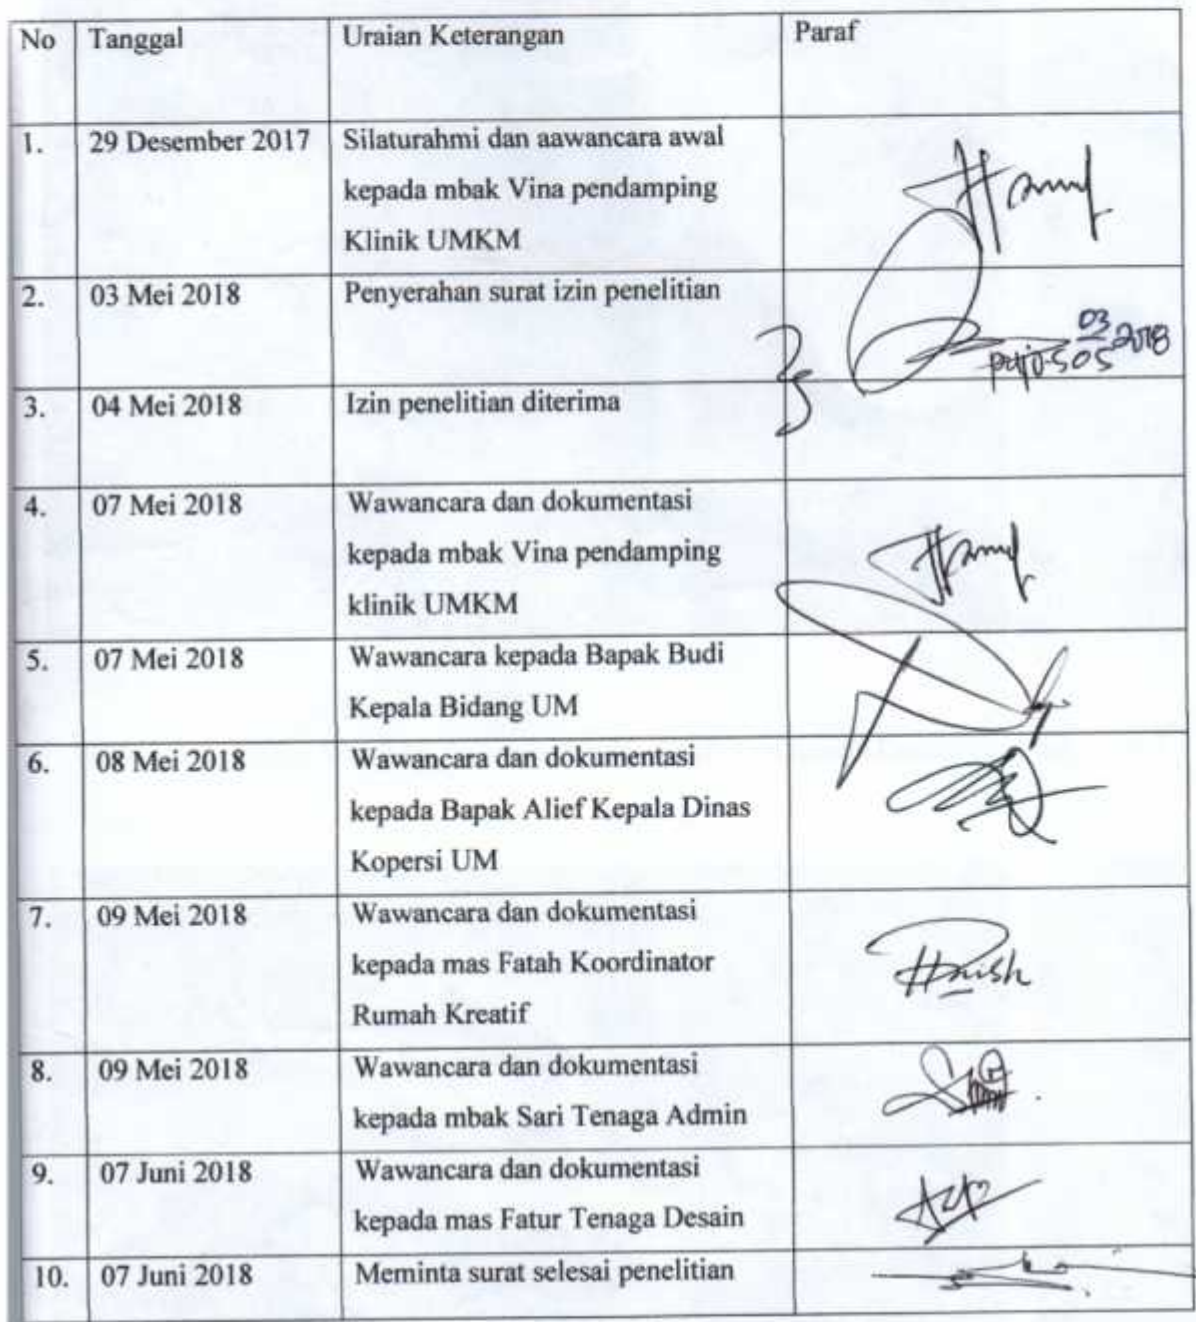 No Tanggal Uraian Keterangan Paraf
1. 29 Desember 2017 Silaturahmi dan aawancara awal
kepada mbak Vina pendamping
Klinik UMKM
2. 03 Mei 2018 Penyerahan surat izin penelitian
03
2018
05
3. 04 Mei 2018 Izin penelitian diterima
4. 07 Mei 2018 Wawancara dan dokumentasi
kepada mbak Vina pendamping
klinik UMKM
5. 07 Mei 2018 Wawancara kepada Bapak Budi
Kepala Bidang UM
6. 08 Mei 2018 Wawancara dan dokumentasi
kepada Bapak Alief Kepala Dinas
Kopersi UM
7. 09 Mei 2018 Wawancara dan dokumentasi
kepada mas Fatah Koordinator
Rumah Kreatif
8. 09 Mei 2018 Wawancara dan dokumentasi
kepada mbak Sari Tenaga Admin
9. 07 Juni 2018 Wawancara dan dokumentasi
kepada mas Fatur Tenaga Desain
10. 07 Juni 2018 Meminta surat selesai penelitian